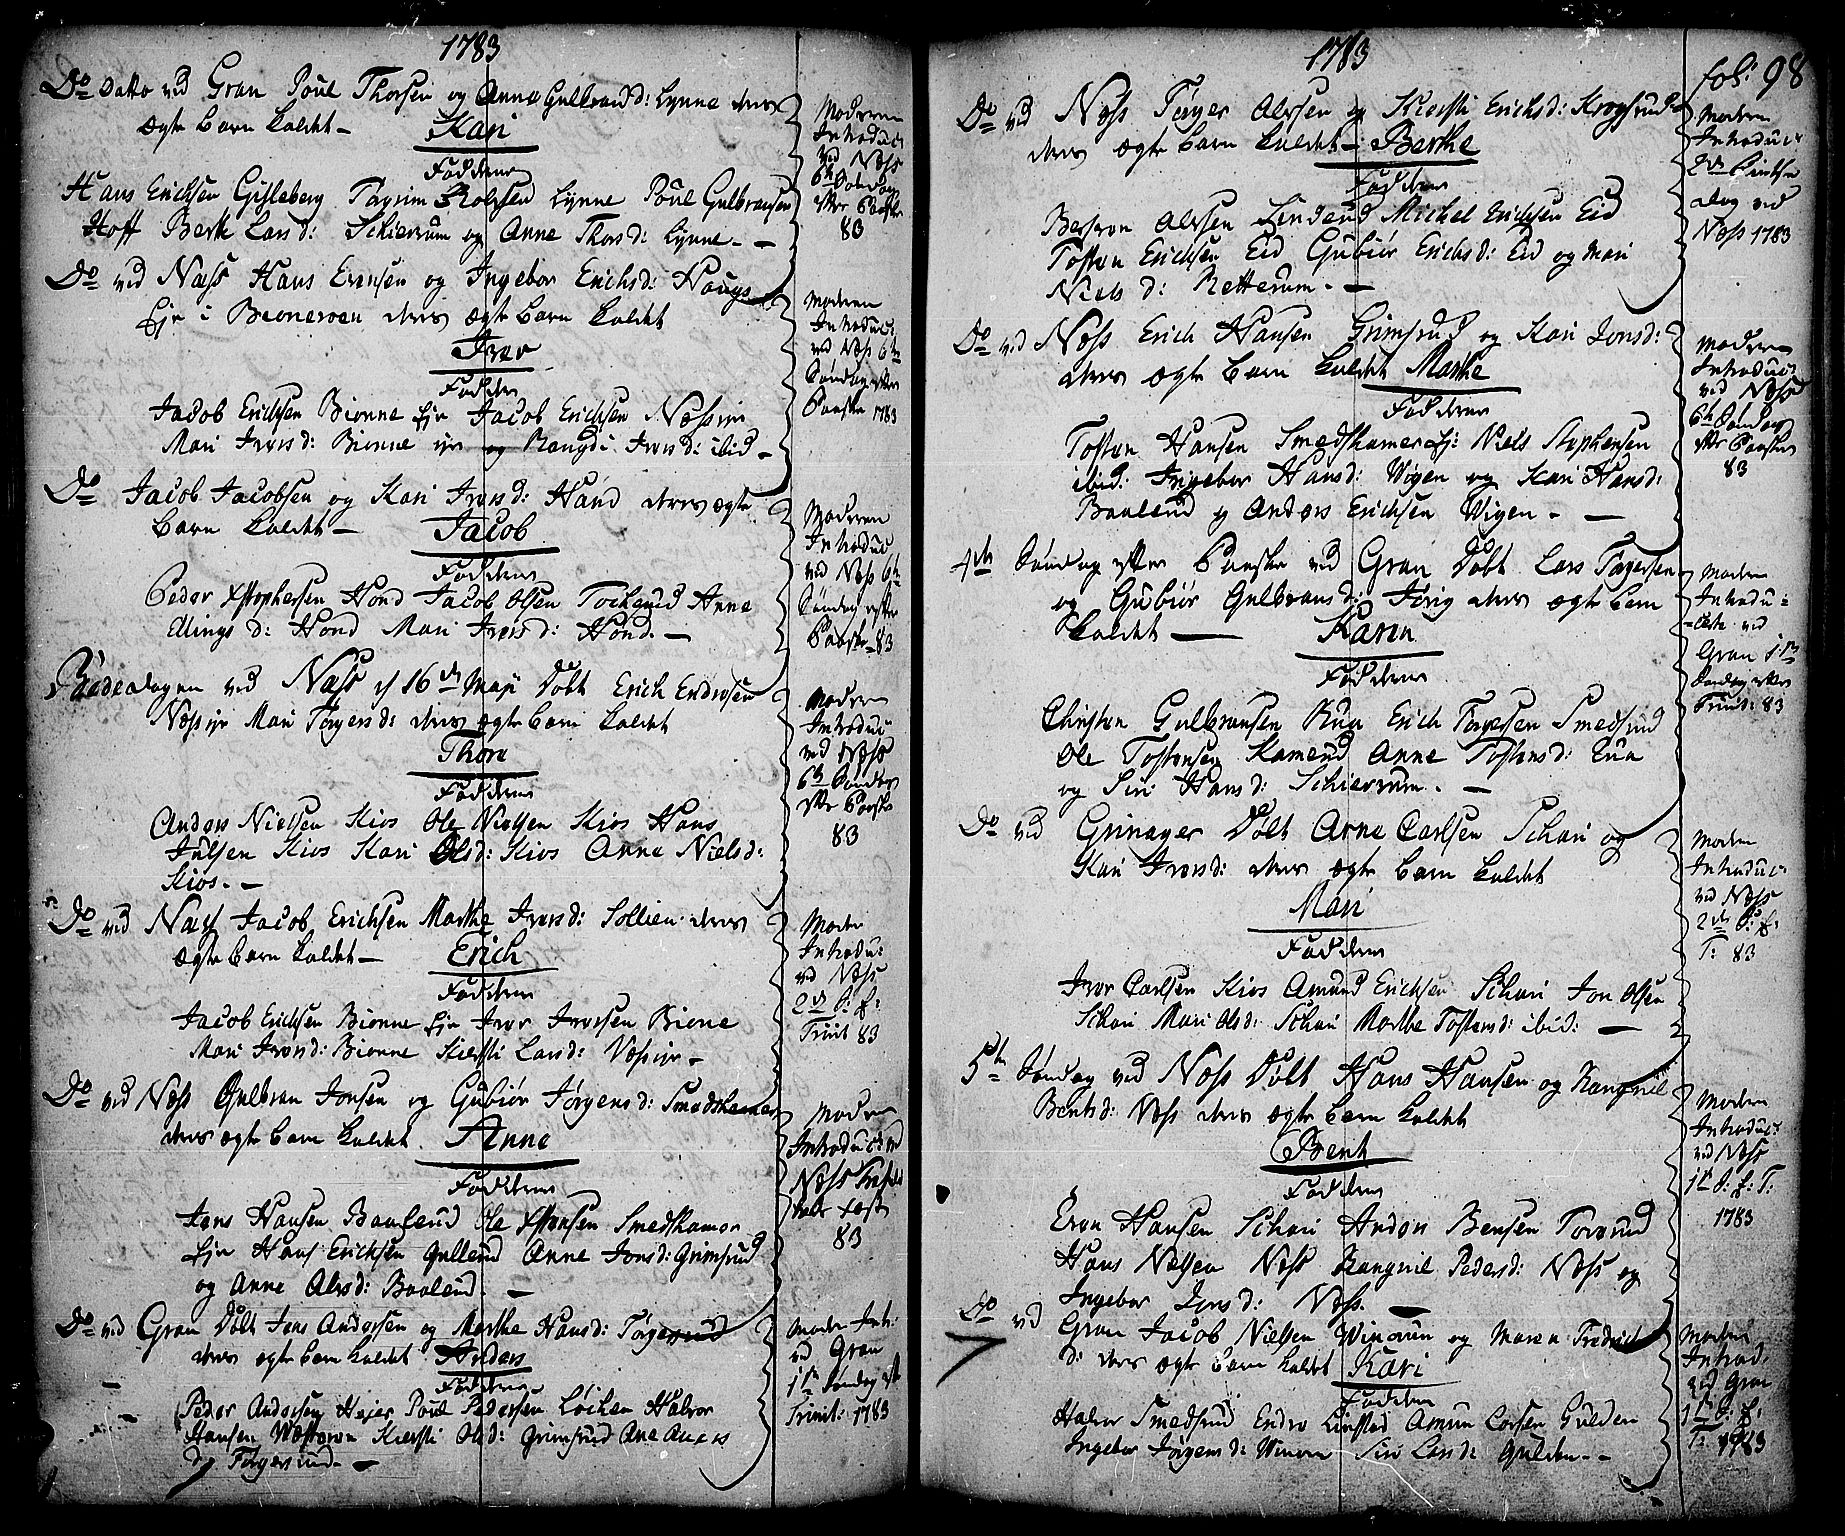 1783
Do Dato ved Gran Poul Thorsen og Anne Gulbrands d: Lynne deres
ægte barn kaldet – Kari
Fadderne
Hans Erichsen Gisleberg Taarim Rolvsen Lynne Poul Gulbransen
Hoff Berte Lars d: Schierrum og Anne Thors d: Lynne –
Moderen
Introduc:
ved Næss
6te Søndag
efter Paaske
83
Do ved Næss Hans Evensen og Ingebor Erichs d: Haugs
Eje i Bioneroen deres ægte barn kaldet
Iver
Fadderne
Jacob Erichsen Bionne Eje Jacob Erichsen Næss eje
Mari Ivers d: Bionne eje og Rangdi Ivers d: ibid –
Moderen
Introduc:
ved Næss 6te
Søndag efter
Paaske 1783
Do Jacob Jacobsen og Kari Ivers d: Hand deres ægte
barn kaldet – Jacob
Fadderne
Peder Xstophersen Hond Jacob Olsen Tocherud Anne
Ellings d: Hond Mari Ivers d: Hond –
Moderen
Introduc
ved Næss 6te
Søndag efter
Paaske 83
Bededagen ved Næss d 16de Maji Døbt Erich Endresen
Næss eje Mari Torgers d: deres ægte barn kaldet
Thore
Fadderne
Anders Nielsen Kios Ole Nielsen Kios Hans
Julsen Kios Kari Ols d: Kios Anne Niels d:
Kios –
Moderen
Introduc
ved Næss
6te Søndag
efter Paaske
83
Do ved Næss Jacob Erichsen Marthe Ivers d: Sollien deres
ægte barn kaldet – Erich
Fadderne
Jacob Erichsen Bionne Eje Iver Iversen Bione
Mari Ivers d: Bionne Kiersti Lars d: Næss eje –
Moder
Introdu:
ved Næss
2den S: f:
Trinit 83
Do ved Næss Gulbran Jonsen og Gubiør Jørgens d: Smedshammer
deres ægte barn kaldet Anne
Fadderne
Jens Hansen Baalerud Ole Xstensen Smedshamer
Eje Hans Erichsen Gullerud Anne Jons d: Grimsrud
og Anne Alvs d: Baalerud –
Moderen
Introduc: ved
Næss
83
Do ved Gran Døbt Jens Andersen og Marthe Hans d: Torgersrud
deres ægte barn kaldet Anders
Fadderne
Peder Andersen Hejer Poul Pedersen Løchen Halvor
Hansen Kiersti Ols d: Grimsrud Ane Anders
d: Torgersrud –
Moder Int:
ved Gran
1ste Søndag eft
Trinit: 1783
1783
fol: 98
Do ved Næss Torger Alvsen og Kiersti Erichs d: Krogsrud
deres ægte barn kaldet – Berthe
Fadderne
Alvsen Linderud Michel Erichsen Eid
Tosten Erichsen Eid Gubiør Erichs d: Eid og Mari
Niels d: Retterum –
Moderen
Introduc:
2den Pintse
dag ved
Næss 1783
Do ved Næss Erich Hansen Grimsrud og Kari Jons d:
deres ægte barn kaldet Marthe
Fadderne
Tosten Hansen Smedshamer Ej: Niels Stephensen
ibid: Ingebor Hans d: Wigen og Kari Hans d:
Baalerud og Anders Erichsen Wigen –
Moderen
Introduc:
ved Næss
6te Søndag
efter Paaske
83
4de Søndag efter Paaske ved Gran Døbt Lars Torgersen
og Gubiør Gulbrans d: deres ægte barn
kaldet – Karen
Fadderne
Christen Gulbransen Rua Erich Torgersen Smedsrud
Ole Tostensen Kamerud Anne Tostens d: Rua
og Siri Hans d: Schierrum –
Modren
Introdu=
=cert ved
Gran 1ste
Søndag efter
Trinit: 83
Do ved Grinager Døbt Arne Carlsen Schari og
Kari Ivers d: deres ægte barn kaldet
Mari
Fadderne
Iver Carlsen Kios Amund Erichsen Schari Jon Olsen
Schari Mari Ols d: Schari Marthe Tostens d: ibid: –
Modren
Introduc:
ved Næss
2den S: f:
T: 83
5te Søndag ved Næss Døbt Hans Hansen og Rangnil
Bents d: Næss deres ægte barn kaldet
Bent
Fadderne
Even Hansen Schari Anders Bensen Torsrud
Hans Nielsen Næss Rangnil Peders d: Næss og
Ingebor Jens d: Næss –
Modren
Introduc:
ved Næss
1ste S: f: T:
1783
Do ved Gran Jacob Nielsen Winorum og Maren Fredrich
d: deres ægte barn kaldet Kari
Fadderne
Halvor Smedsrud Endre Linstad Amun Larsen Gulden
Ingebor Jørgens d: Winorn Siri Lars d: Gulden –
Modren
Introd:
ved Gran
1ste S: f:
T: 1783